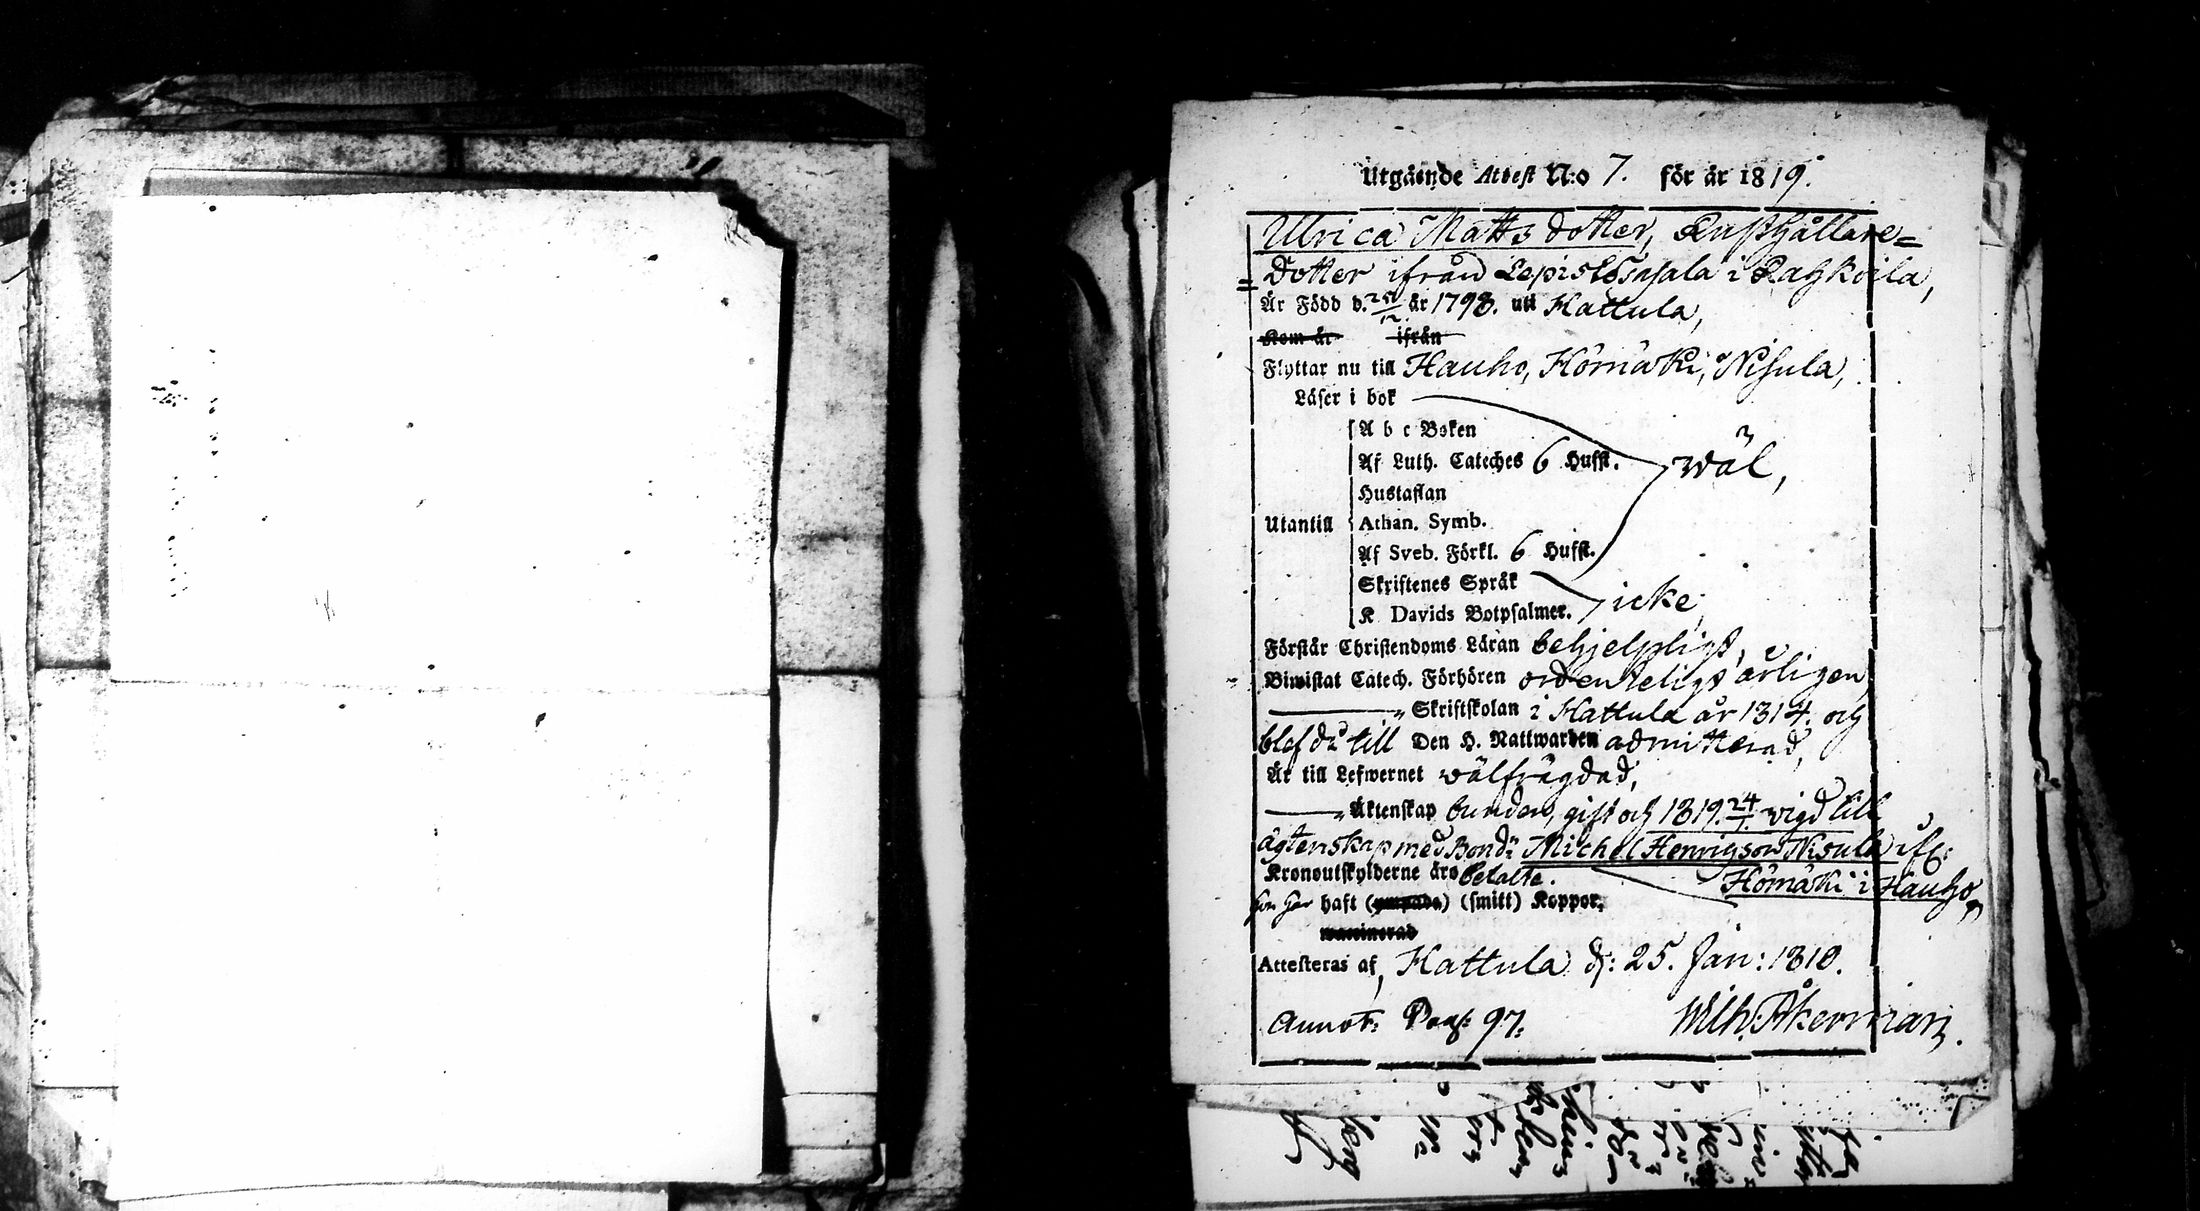 Utgående Attest N:o 7. för år 1819.
Ulrica Matts dotter, Rusthållare=
=dotter ifrån Lepistösnjala i Rahkoila,
Är Född d. 25/12 år 1798. uti Hattula,
Kom år ifrån
Flyttar nu till Hauho, Hömäki, Nisula,
Läser i bok
A b c Boken
Af Luth. Cateches 6 Hufst. wäl,
Hustaflan
Utantill Athan. Symb.
Af Sveb. Förkl. 6 Hufst.
Skriftenes Språk
K Davids Botpsalmer. icke,
Förstår Christendoms Läran behjelpligt,
Biwistat Catech. Förhören ordenteligt årligen,
„ Skriftskolan i Hattula år 1814. och
blef då till Den H. Nattwarden admitterad,
Är till Lefwernet wälfrägdad,
„ Äktenskap bunden, gift och 1819. 24/1. vigd till
ägtenskap med Bond: Michel Henricson Nisula ifr:
Kronoutskylderne äro betalte. Hömäki i Hauho,
hon har haft (ympade) (smitt) Koppor,
waccinerad
Attesteras af, Hattula d: 25. Jan: 1819.
Annot: Pag: 97. Wilh. Åkerman.